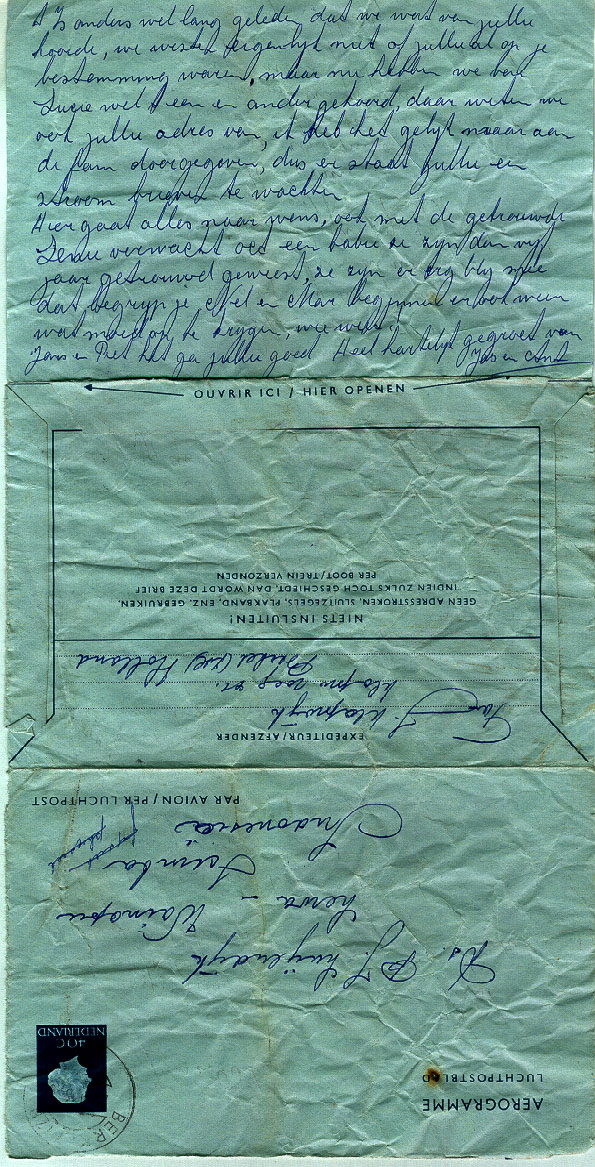 't Is anders wel lang geleden dat we wat van jullie
hoorde, we wisten eigenlijk niet of jullie al op je
bestemming waren, maar nu hebben we van
Lucie wel 't een en ander gehoord, daar weten we
ook jullie adres van, ik heb het gelijk maar aan
de fam doorgegeven, dus er staat jullie een
stroom brieven te wachten
Hier gaat alles naar wens, ook met de getrouwde
verwacht ook een babie ze zijn dan vijf
jaar getrouwd geweest, ze zijn er erg blij mee
dat begrijp je, Nel en Mar beginnen er ook weer
wat moed op te krijgen, wie weet.
Jans en Piet het ga jullie goed Heel hartelijk gegroet van
Jas en Ant
OUVRIR ICI / HIER OPENEN
NIETS INSLUITEN!
GEEN ADRESSTROKEN, SLUITZEGELS, PLAKBAND, ENZ. GEBRUIKEN.
INDIEN ZULKS TOCH GESCHIEDT, DAN WORDT DEZE BRIEF
PER BOOT/TREIN VERZONDEN
EXPÉDITEUR/AFZENDER
Fam J. Klapwijk
Holland
AEROGRAMME
LUCHTPOSTBLAD
NEDERLAND
40C
BER
Ds. P.J. Luijendijk
Lewa - Waingapu
Soemba
Indonesia
PAR AVION/PER LUCHTPOST